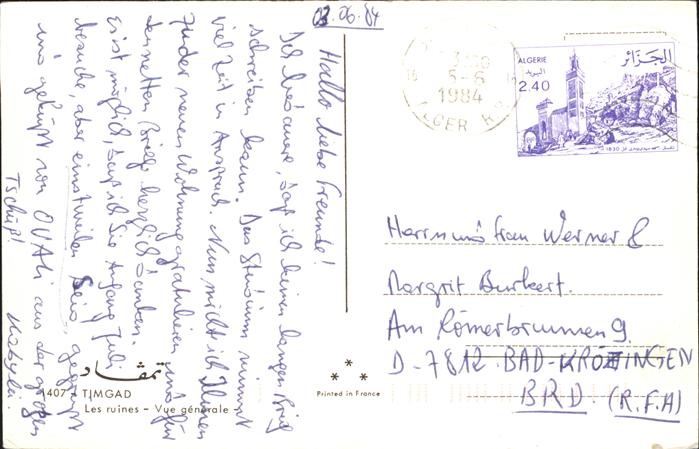 03.06.84
Hallo liebe Freunde!
Ich bedauere, daß ich keinen langen Brief
schreiben kann. Das Studium nimmt
viel Zeit in Anspruch. Nun möcht ich Ihnen
zu der neuen Wohnung gratulieren und für
den netten Brief herzlich danken.
Es ist möglich, daß ich Sie Anfang Juli
besuche, aber einstweilen seid gegrüßt
und geküßt von OVAli aus der großen
Kabylei.
Tschüß!
5-6
1984
ALGER
ALGERIE
البريد
2.40
الجزائر
1830
Herrn und Frau Werner &
Margrit Burkert.
Am Römerbrunnen 9.
D-7812 BAD-KROZINGEN
BRD. (R.F.A)
تمقاد
1407 - TIMGAD
Les ruines - Vue générale -
Printed in France